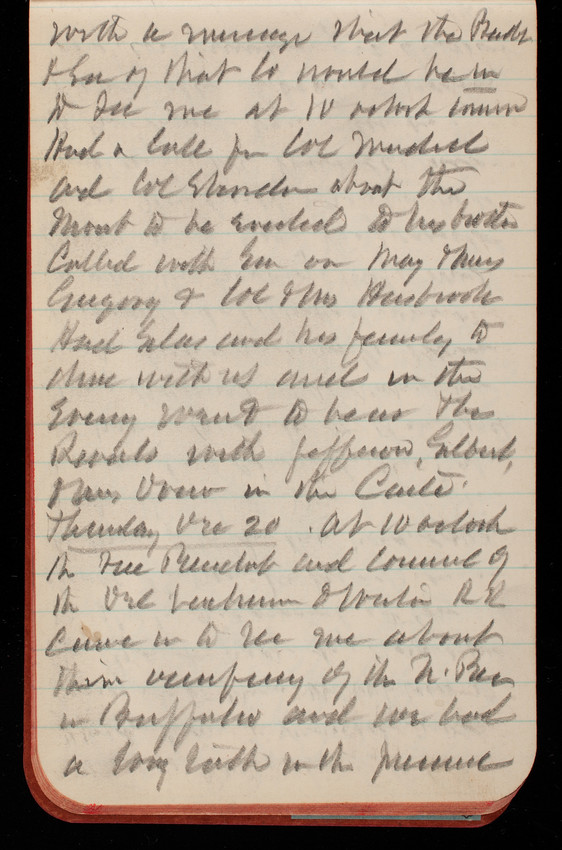 with a message that the Presdt
& Gen of that Co would be in
to see me at 10 oclock
Had a Call from Col
and Col about the
Mont to be erected to his brother
Called with Gen on May & Mrs
Gregory & Col & Mrs Hasbrook
Had Silas and his family to
dine with us and in the
Evening went to hear the
with Jefferson, Gilbert,
& Mrs in the
Thursday Dec 20. At 10 oclock
the Vice President and Counsel of
the Del & Western RR
Came in to see me about
their occupancy of the
in Buffalo and we had
a long talk in the presence